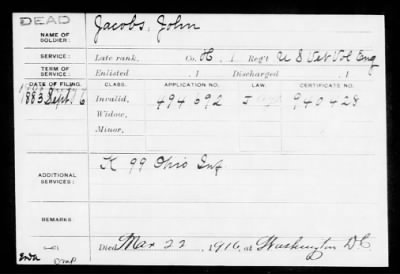 DEAD
NAME OF SOLDIER: Jacobs, John
SERVICE: Late rank, Co. H, 1 Reg't U S Vet Vol Eng
TERM OF SERVICE: Enlisted , 1 Discharged , 1
DATE OF FILING. CLASS. APPLICATION NO. LAW. CERTIFICATE NO.
1883 Sept 6 Invalid, 494692 J 940428
Widow,
Minor,
ADDITIONAL SERVICES: K 99 Ohio Inf
REMARKS
Died Mar 22, 1916, at Washington D C